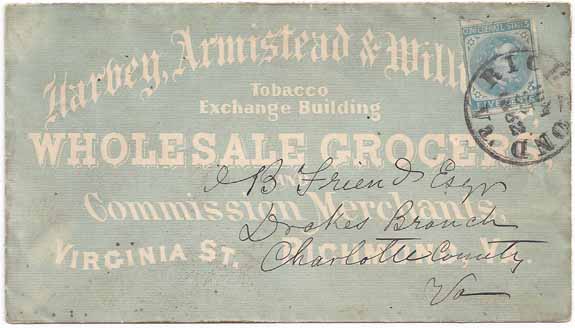 Harvey, Armistead & Willi
Tobacco
Exchange Building
WHOLESALE GROCERS,
AND
Commission Merchants,
VIRGINIA ST. RICHMOND, VA.
FIVE
RICHMOND Va.
1862
J B Friend Esqr
Drakes Branch
Charlotte County
Va